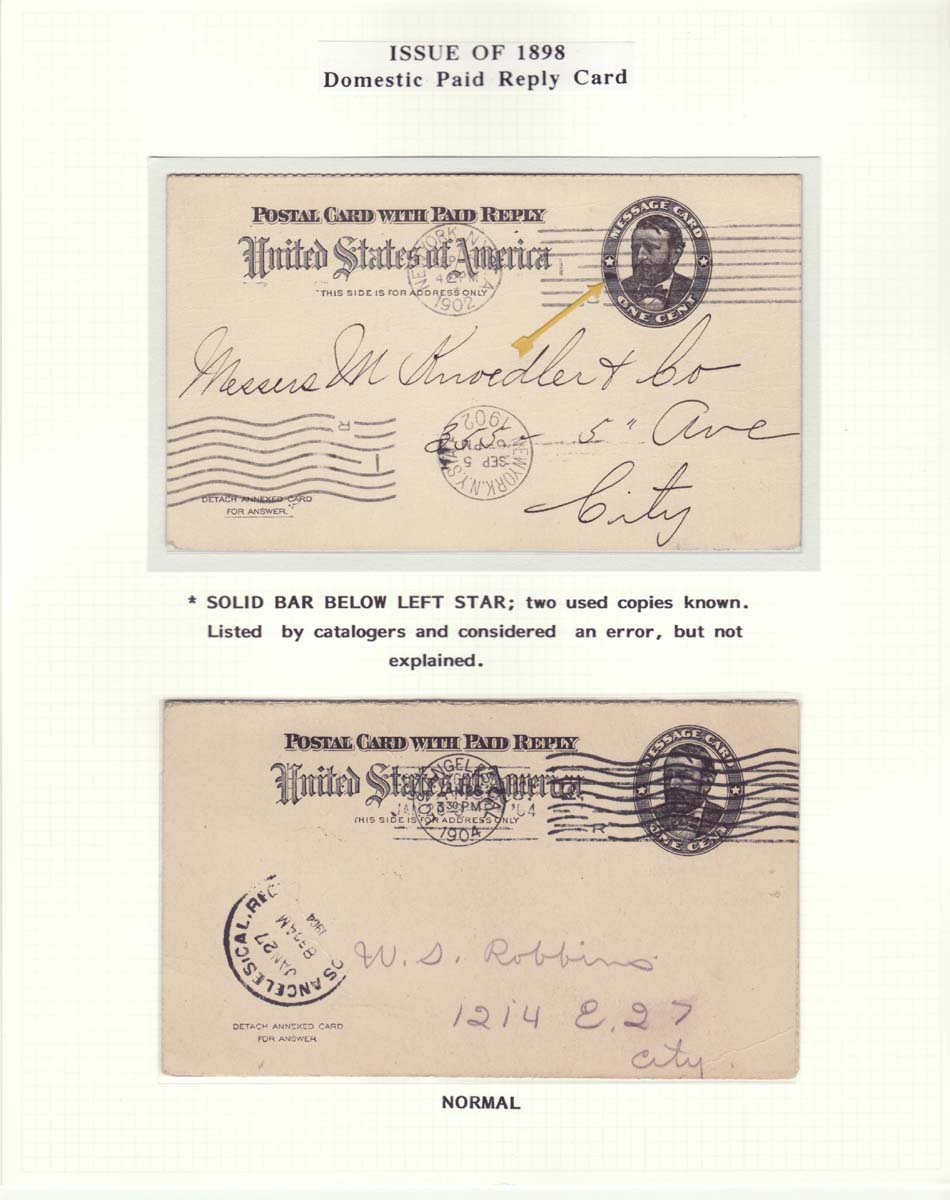 ISSUE OF 1898
Domestic Paid Reply Card
POSTAL CARD WITH PAID REPLY
United States of America
THIS SIDE IS FOR ADDRESS ONLY
MESSAGE CARD
ONE CENT
NEW YORK, N.Y.
1902
Messers M Knoedler & Co
355 - 5" Ave
City
R
1
NEW YORK, N.Y. STA.
SEP 5
1902
DETACH ANNEXED CARD
FOR ANSWER.
* SOLID BAR BELOW LEFT STAR; two used copies known.
Listed by catalogers and considered an error, but not
explained.
POSTAL CARD WITH PAID REPLY
United States of America
THIS SIDE IS FOR ADDRESS ONLY
MESSAGE CARD
ONE CENT
LOS ANGELES, CAL.
3 30 P.M.
1904
R
LOS ANGELES, CAL. REC'D.
JAN 27
1904
W. S. Robbins
1214 E. 27
City.
DETACH ANNEXED CARD
FOR ANSWER.
NORMAL